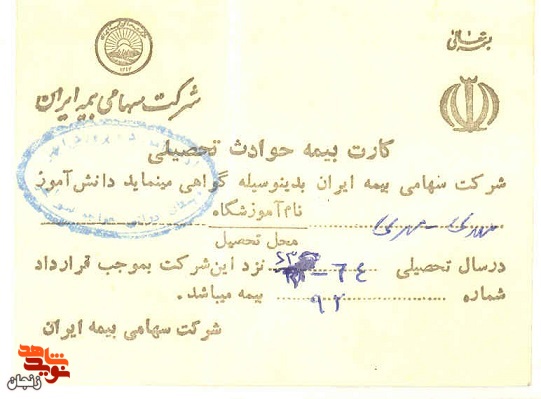 بسمه تعالی
شرکت سهامی بیمه ایران
کارت بیمه حوادث تحصیلی
شرکت سهامی بیمه ایران بدینوسیله گواهی مینماید دانش آموز
نام آموزشگاه
محل تحصیل
درسال تحصیلی ٦٤ - ٦٣ نزد این شرکت بموجب قرارداد
شماره ٩٢ بیمه میباشد.
شرکت سهامی بیمه ایران
نوید شاهد
زنجان